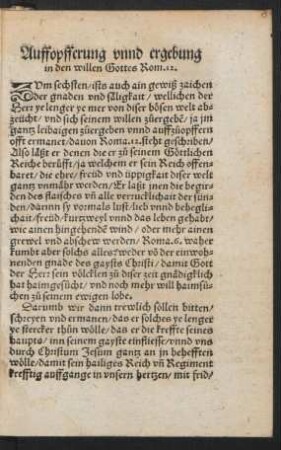 Auffopfferung vnnd ergebung
in den willen Gottes Rom. 12.
ZVm sechsten/ ists auch ain gewiß zaichen
der gnaden vnd säligkait/ wellichen der
Herr ye lenger ye mer von diser bösen welt ab-
zeücht/ vnd sich seinem willen zůergebē/ ja jm
gantz leibaigen zůergeben vnnd auffzůopffern
offt ermanet/ dauon Roma. 12. steht geschribē/
Also läßt er denen die er zů seinem Göttlichen
Reiche berůfft/ ja welchem er sein Reich offen-
baret/ die ehre/ freüd vnd üppigkait diser welt
gantz vnmähr werden/ Er laßt jnen die begir-
den des flaisches vñ alle verrucklichait der sun-
den/ darinn sy vormals lust/ lieb vnnd beheg-
lichait/ freüd/ kurtzweyl vnnd das leben gehabt/
wie ainen hingehendē wind/ oder mehr ainen
grewel vnd abschew werden/ Roma. 6. waher
kumbt aber solchs alles? weder vō der einwoh-
nenden gnade des gaysts Christi/ damit Gott
der Herr sein völcklen zů diser zeit gnädigklich
hat haimgesůcht/ vnd noch mehr will haimsů-
chen zů seinem ewigen lobe.
Darumb wir dann trewlich sollen bitten/
schreyen vnd ermanen/ das er solches ye lenger
ye stercker thůn wölle/ das er die kreffte seines
haupts/ inn seinem gayste einfliesse/ vnnd vns
durch Christum Jesum gantz an jn behefften
wölle/ damit sein hailiges Reich vñ Regiment
krefftig auffgange in vnsern hertzen/ mit frid/